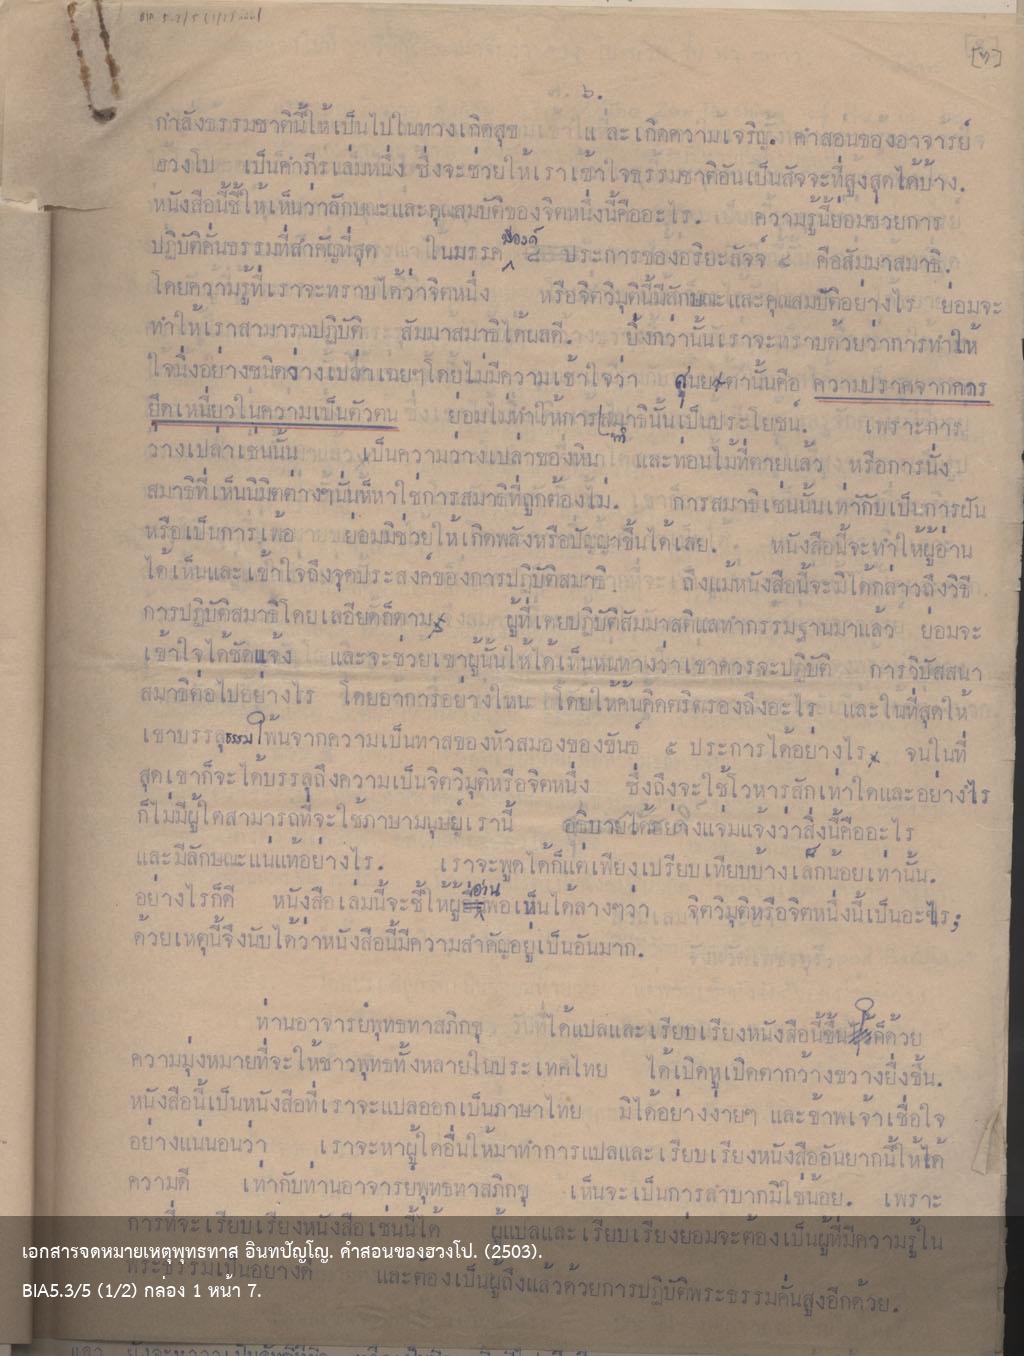 [๗]
๖.
กำลังธรรมชาตินี้ให้เป็นไปในทางเกิดสุข และเกิดความเจริญ. คำสอนของอาจารย์
ฮวงโป เป็นคำภีร์เล่มหนึ่ง ซึ่งจะช่วยให้เราเข้าใจธรรมชาติอันเป็นสัจจะที่สูงสุดได้บ้าง.
หนังสือนี้ชี้ให้เห็นว่าลักษณะและคุณสมบัติของจิตหนึ่งนี้คืออะไร. ความรู้นี้ย่อมช่วยการ
ปฏิบัติคั่นธรรมที่สำคัญที่สุด ในมรรคมีองค์ ๘ ประการของอริยะสัจจ์ ๔ คือสัมมาสมาธิ.
โดยความรู้ที่เราจะทราบได้ว่าจิตหนึ่ง หรือจิตวิมุตินี้มีลักษณะและคุณสมบัติอย่างไร ย่อมจะ
ทำให้เราสามารถปฏิบัติ สัมมาสมาธิได้ผลดี. ยิ่งกว่านั้นเราจะทราบด้วยว่าการทำให้
ใจนิ่งอย่างชนิดว่างเปล่าเฉยๆโดยไม่มีความเข้าใจว่า สุนยตานั้นคือ ความปราศจากการ
ยึดเหนี่ยวในความเป็นตัวตน ย่อมไม่ทำให้การทำสมาธินั้นเป็นประโยชน์. เพราะการ
วางเปล่าเช่นนั้น เป็นความว่างเปล่าของหิน และท่อนไม้ที่ตายแล้ว หรือการนั่ง
สมาธิที่เห็นนิมิตต่างๆนั่นก็หาใช่การสมาธิที่ถูกต้องไม่. การสมาธิเช่นนั้นเท่ากับเป็นการฝัน
หรือเป็นการเพ้อ ย่อมมิช่วยให้เกิดพลังหรือปัญญาขึ้นได้เลย. หนังสือนี้จะทำให้ผู้อ่าน
ได้เห็นและเข้าใจถึงจุดประสงค์ของการปฏิบัติสมาธิ. ถึงแม้หนังสือนี้จะมิได้กล่าวถึงวิธี
การปฏิบัติสมาธิโดยเลอียดก็ตาม ผู้ที่เคยปฏิบัติสัมมาสติแลทำกรรมฐานมาแล้ว ย่อมจะ
เข้าใจได้ชัดแจ้ง และจะช่วยเขาผู้นั้นให้ได้เห็นหนทางว่าเขาควรจะปฏิบัติ การวิปัสสนา
สมาธิต่อไปอย่างไร โดยอาการอย่างไหน โดยให้ค้นคิดตริตรองถึงอะไร และในที่สุดให้
เขาบรรลุธรรมให้พ้นจากความเป็นทาสของหัวสมองของขันธ์ ๕ ประการได้อย่างไร จนในที่
สุดเขาก็จะได้บรรลุถึงความเป็นจิตวิมุติหรือจิตหนึ่ง ซึ่งถึงจะใช้โวหารสักเท่าใดและอย่างไร
ก็ไม่มีผู้ใดสามารถที่จะใช้ภาษามนุษย์เรานี้ อธิบายได้อย่างแจ่มแจ้งว่าสิ่งนี้คืออะไร
และมีลักษณะแน่แท้อย่างไร. เราจะพูดได้ก็แต่เพียงเปรียบเทียบบ้างเล็กน้อยเท่านั้น.
อย่างไรก็ดี หนังสือเล่มนี้จะชี้ให้ผู้อ่านพอเห็นได้ลางๆว่า จิตวิมุติหรือจิตหนึ่งนี้เป็นอะไร;
ด้วยเหตุนี้จึงนับได้ว่าหนังสือนี้มีความสำคัญอยู่เป็นอันมาก.
ท่านอาจารย์พุทธทาสภิกขุ ได้แปลและเรียบเรียงหนังสือนี้ขึ้นก็ด้วย
ความมุ่งหมายที่จะให้ชาวพุทธทั้งหลายในประเทศไทย ได้เปิดหูเปิดตากว้างขวางยิ่งขึ้น.
หนังสือนี้เป็นหนังสือที่เราจะแปลออกเป็นภาษาไทย มิได้อย่างง่ายๆ และข้าพเจ้าเชื่อใจ
อย่างแน่นอนว่า เราจะหาผู้ใดอื่นให้มาทำการแปลและเรียบเรียงหนังสืออันยากนี้ให้ได้
ความดี เท่ากับท่านอาจารย์พุทธทาสภิกขุ เห็นจะเป็นการลำบากมิใช่น้อย. เพราะ
การที่จะเรียบเรียงหนังสือเช่นนี้ได้ ผู้แปลและเรียบเรียงย่อมจะต้องเป็นผู้ที่มีความรู้ใน
พระธรรมเป็นอย่างดี และต้องเป็นผู้ถึงแล้วด้วยการปฏิบัติพระธรรมคั่นสูงอีกด้วย.
เอกสารจดหมายเหตุพุทธทาส อินทปัญโญ. คำสอนของฮวงโป. (2503).
BIA5.3/5 (1/2) กล่อง 1 หน้า 7.